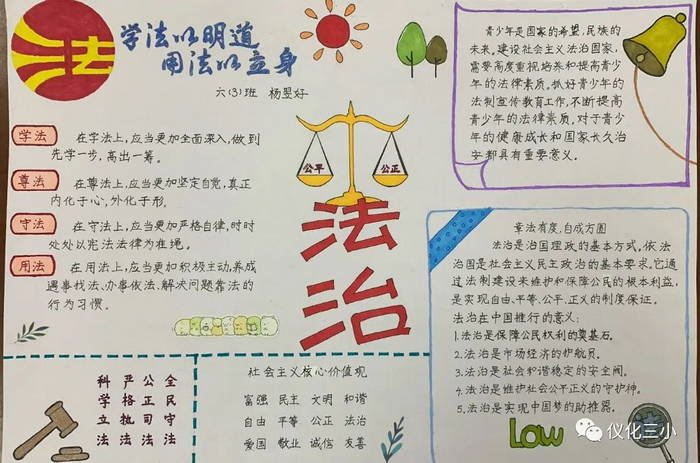 法
学法以明道
用法以立身
六(3)班 杨翌好
学法 在学法上,应当更加全面深入,做到
先学一步,高出一筹。
尊法 在尊法上,应当更加坚定自觉,真正
内化于心,外化于形。
守法 在守法上,应当更加严格自律,时时
处处以宪法法律为准绳。
用法 在用法上,应当更加积极主动,养成
遇事找法、办事依法、解决问题靠法的
行为习惯。
公平 公正
法治
青少年是国家的希望,民族的
未来,建设社会主义法治国家,
需要高度重视培养和提高青少年
的法律素质。抓好青少年的
法制宣传教育工作,不断提高
青少年的法律素质,对于青少
年的健康成长和国家长久治
安都具有重要意义。
章法有度,自成方圆
法治是治国理政的基本方式,依法
治国是社会主义民主政治的基本要求。它通
过法制建设来维护和保障公民的根本利益,
是实现自由、平等、公平、正义的制度保证。
法治在中国推行的意义:
1.法治是保障公民权利的奠基石。
2.法治是市场经济的护航员。
3.法治是社会和谐稳定的安全阀。
4.法治是维护社会公平正义的守护神。
5.法治是实现中国梦的助推器。
Law
全民守法
公正司法
严格执法
科学立法
社会主义核心价值观
富强 民主 文明 和谐
自由 平等 公正 法治
爱国 敬业 诚信 友善
仪化三小